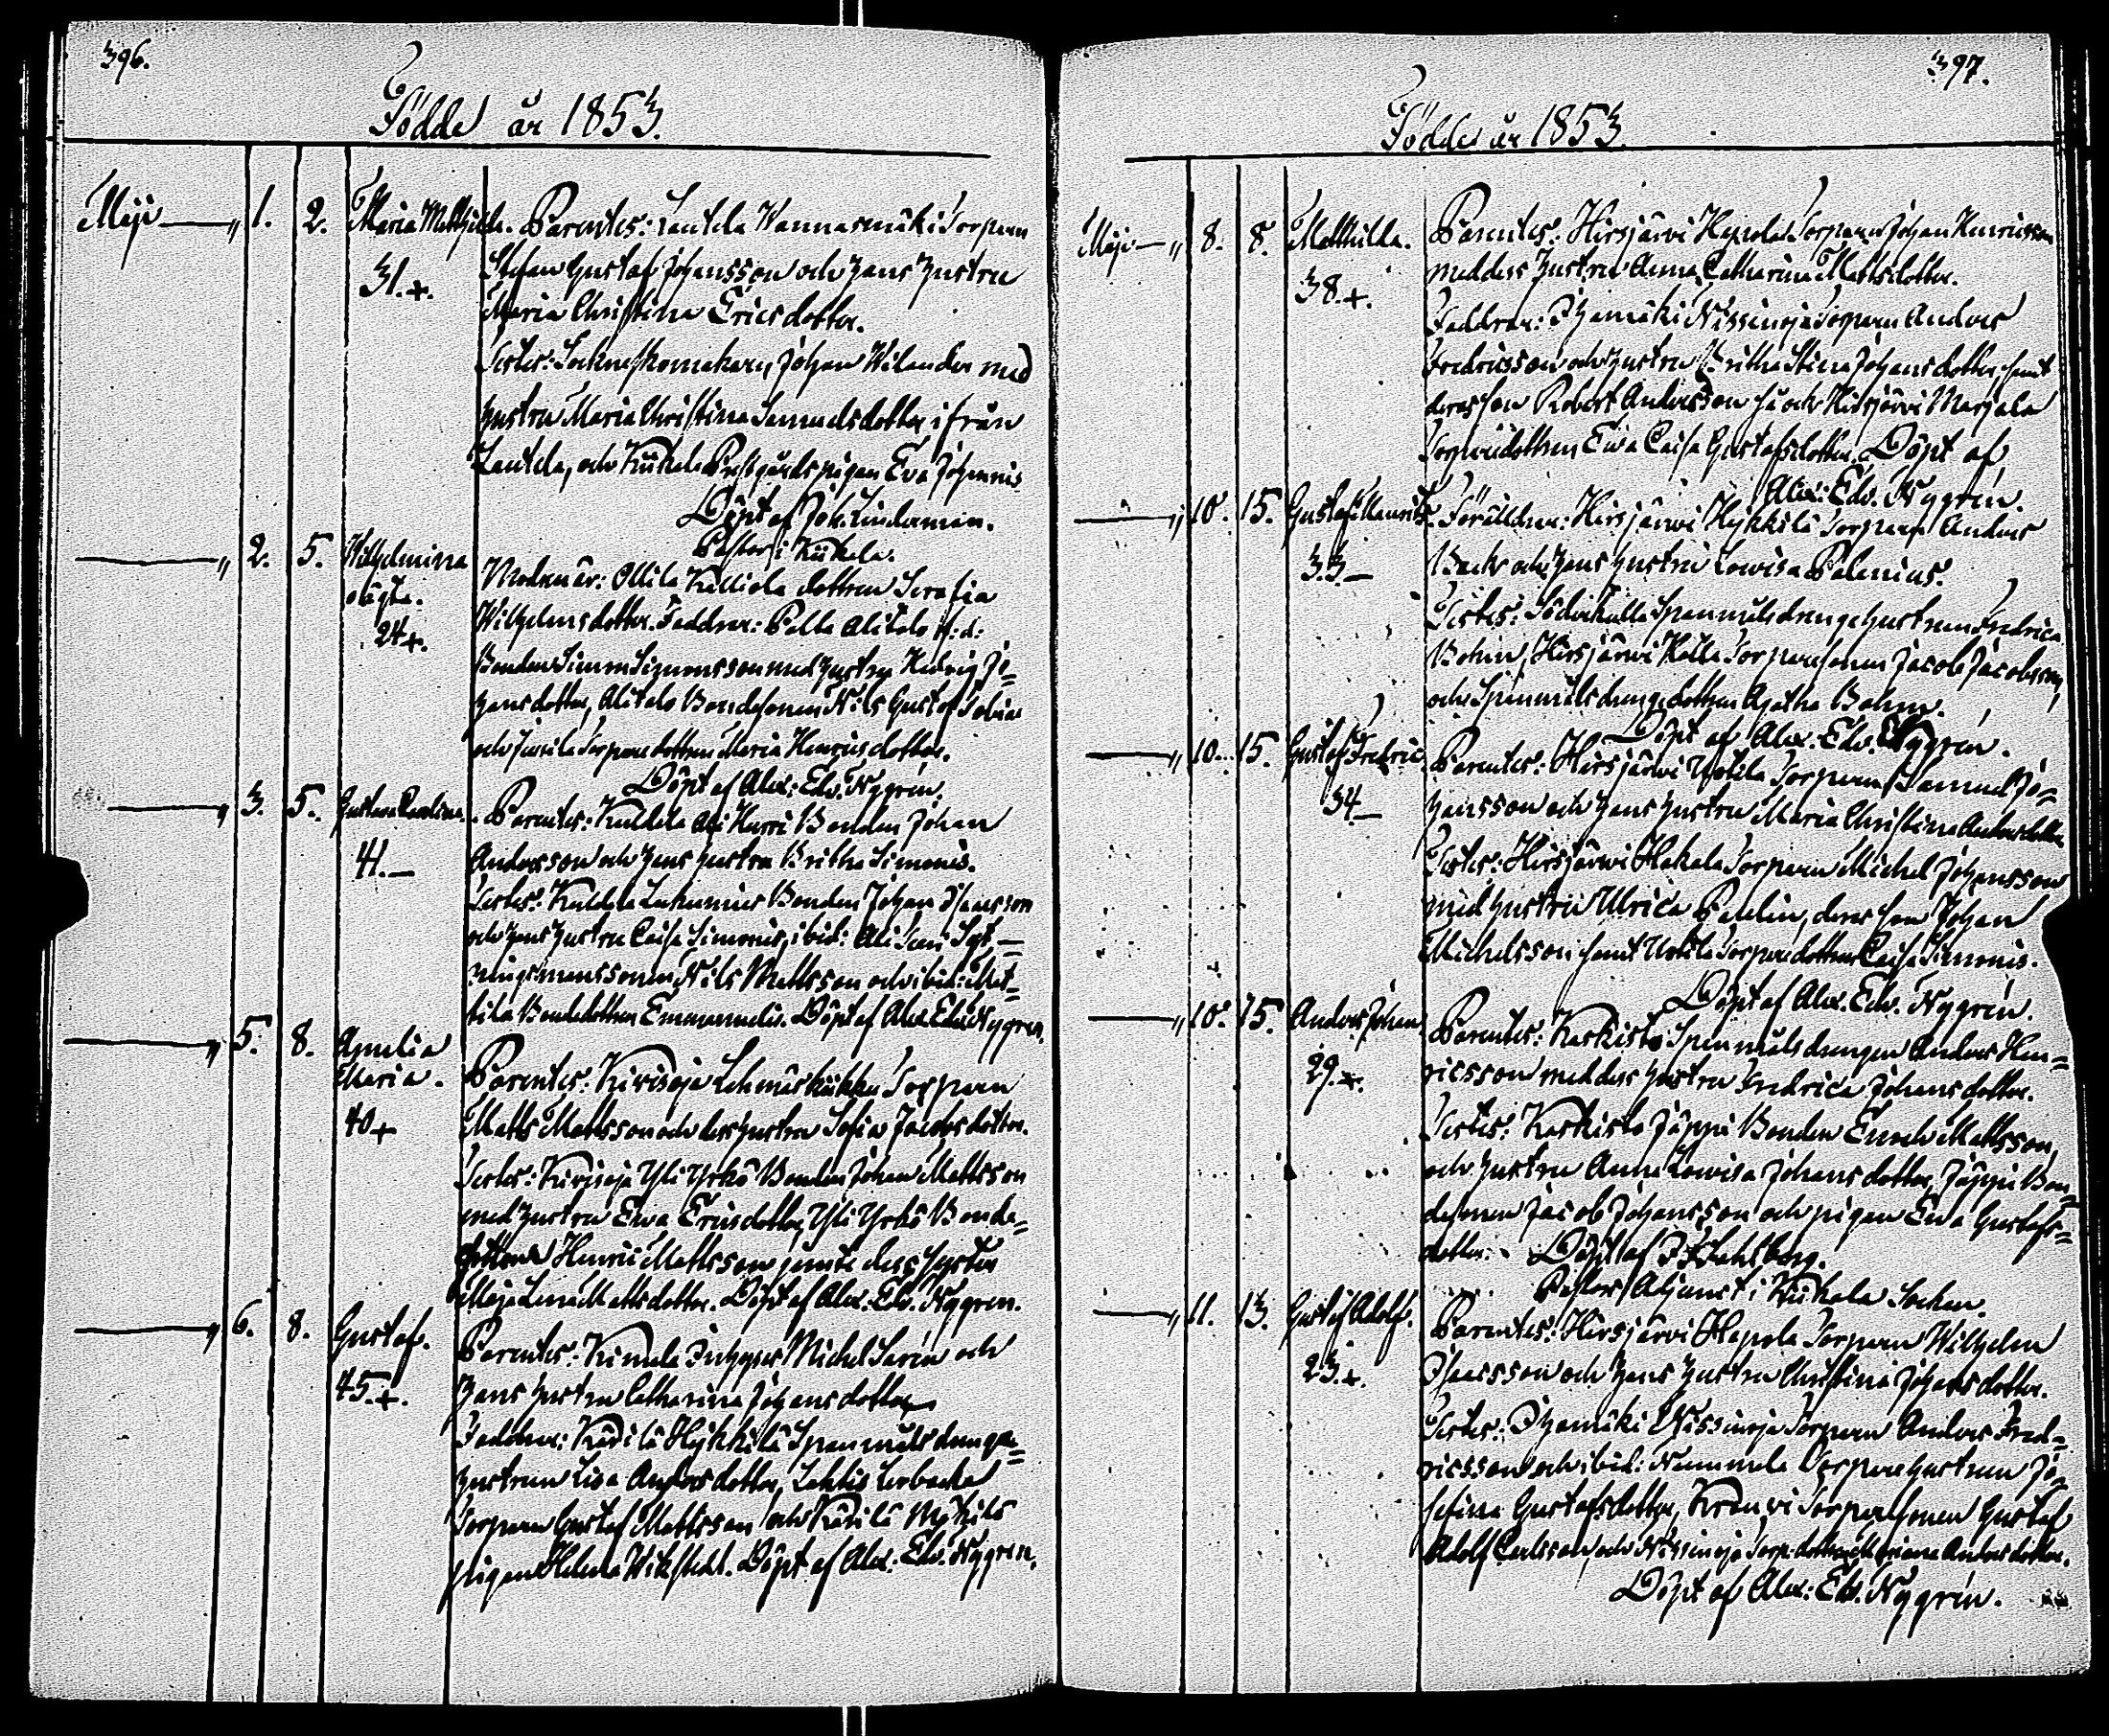 396.
Födde år 1853.
Maji — " 1. 2. Maria Mathilda. Parentes: Lautela Wannasmäki Torparen
31.+. Stefan Gustaf Johansson och hans hustru
Maria Christina Ericsdotter.
Testes: Sockneskomakaren Johan Wilander med
hustru Maria Christina Samuelsdotter ifrån
Lautela, och Kiikala Prestgårds pigan Eva Johannis
Döpt af Joh. Linderman.
Pastor i Kiikala.
— " 2. 5. Wilhelmina Modren är: Ollila Killiola dottren Serafia
oägta. Wilhelmsdotter. Faddrar: Palla Alitalo
24+. Bonden Simon Simonsson med hustru Hedvig Jo=
hansdotter, Alitalo Bondesonen Nils Gustaf Tobias
och Torparedottren Maria Henricsdotter.
Döpt af Alex: Edv. Nygrén.
— " 3. 5. Gustava Carolina. Parentes: Kullela Ali Harri Bonden Johan
41.— Andersson och hans hustru Britha Simonis.
Testes: Bonden Johan Isaacsson
och hans hustru Caisa Simonis, ibid: Ali
ningsmanssonen Nils Mattsson och ibid: Mat=
tila Bondedottren Emanuelis. Döpt af Alex. Edv. Nygren.
— " 5. 8. Amelia Parentes: Kivisoja Torparen
Maria. Matts Mattsson och dess hustru Sofia Jacobsdotter.
40+ Testes: Kivisoja Yli Yrkö Bonden Johan Mattsson
med hustru Ewa Ericsdotter, Yli Yrkö Bonde=
Henric Mattsson jemte dess syster
Maja Lena Mattsdotter. Döpt af Alex. Edv. Nygren.
— " 6. 8. Gustaf. Parentes: Kimala Inhyses Michel Sarén och
45.+. hans hustru Catharina Johansdotter
Faddrar: Kärilä Hykkilä Spanmålsdrenge=
hustrun Lisa Andersdotter,
Torparen Gustaf Mattsson och Kärilä
pigan Helena Wikstedt. Döpt af Alex. Edv. Nygren.
397.
Födde år 1853.
Maji — " 8. 8. Mathilda. Parentes: Hirsjärvi Hepola Torparen Johan Henricsson
38.+. med dess hustru Anna Catharina Mattsdotter.
Faddrar: Ihamäki Nissinoja Torparen Anders
Fredricsson och hustru Britha Stina Johansdotter, samt
deras son Robert Andersson så och Hirsjärvi Marjala
Torparedottren Ewa Caisa Gustafsdotter. Döpt af
Alex: Edv. Nygrén.
— " 10. 15. Gustaf Maurits. Föräldrar: Hirsjärwi Hykkilä Torparen Anders
33— Back och hans hustru Lowisa Palenius.
Testes: Söderkulla Spanmålsdrengehustrun Fredrica
Bohm, Hirsjärwi Torparesonen Jacob Jacobsson,
och Spanmålsdrengedottren Agatha Bohm.
Döpt af Alex. Edv. Nygrén.
— " 10. 15. Gustaf Fredric. Parentes: Hirsjärwi Uotila Torparen Samuel Jo=
34.— hansson och hans hustru Maria Christina Andersdotter
Testes: Hirsjärwi Hakala Torparen Michel Johansson
med hustru Ulrica Palelin, deras son Johan
Michelsson samt Uotila Torparedottren Caisa Simonis.
Döpt af Alex. Edv. Nygrén.
— " 10. 15. Anders Johan Parentes: Karkisto Spanmålsdrengen Anders Hen=
29.+. ricsson med dess hustru Fredrica Johansdotter.
Testes: Karkisto Jäppi Bonden Enoch Mattsson,
och hustru Anna Lowisa Johansdotter, Jäppi Bon=
desonen Jacob Johansson och pigan Ewa Gustafs=
dotter. Döpt af
Pastors Adjunct i Kiikala Socken.
— " 11. 13. Gustaf Adolf. Parentes: Hirsjärvi Hepola Torparen Wilhelm
23.+. Isaacsson och hans hustru Christina Johansdotter.
Testes: Ihamäki Nissinoja Torparen Anders Fred=
ricsson och ibid: Nummela Torparehustrun Jo=
sefina Gustafsdotter, Torparesonen Gustaf
Adolf Carlsson och Nissinoja Torp.dottren Mariana Andersdotter.
Döpt af Alex: Edv. Nygrén.